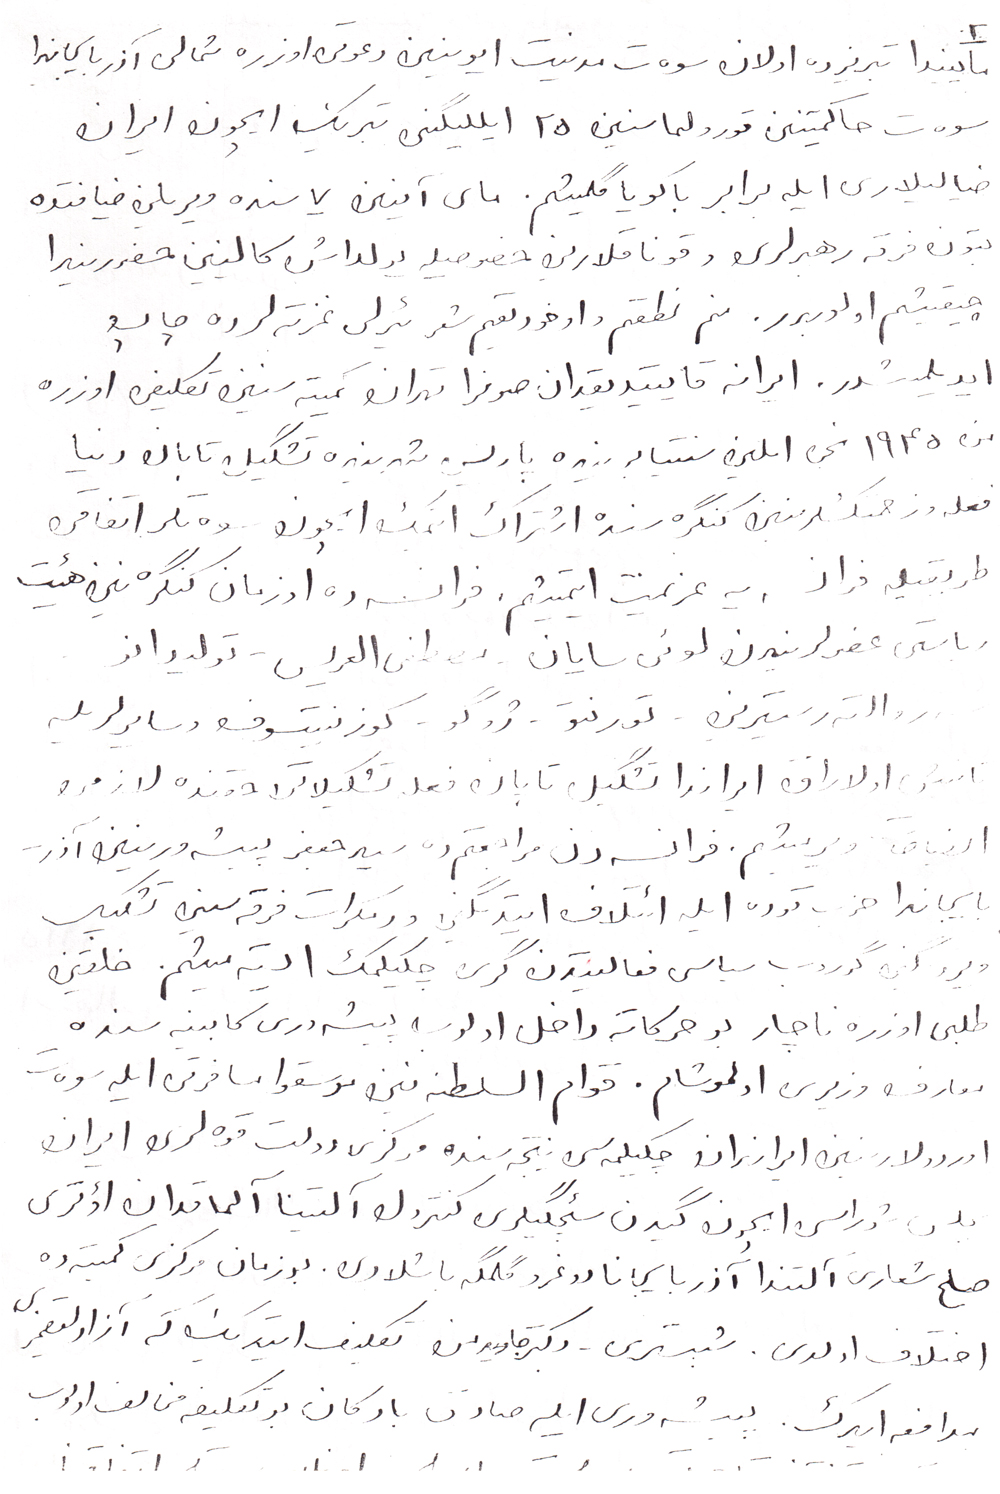 ۲
مأییندا تبریزده اولان سوه‌ت مدنیت ایوینین دعوتی اوزره شمالی آذربایجاندا
سوه‌ت حاکمیتنین قورولماسنین ۲۵ ایللیگینی تبریک ایچون ایران
ضیالیلاری ایله برابر باکویا گلمیشم. مای آیینین ۷ سنده ویریلن ضیافتده
بتون فرقه رهبرلری و قوناقلارین حضوریله یولداش کالینین حضوریندا
چیقیشیم اولوبدور. منم نطقیم و اوخودیقیم شعر یئرلی غزته‌لرده چاپ
ایدیلمیشدر. ایرانه قاییتدیقدان صونرا تهران کمیته سنین تکلیفی اوزره
من ۱۹۴۵ نجی ایلین سنتیابریندا پاریس شهرینده تشکیل تاپان دنیا
فعله و زحمتکشلرینین کنگره سنده اشتراک ایتمک ایچون سوه‌تلر اتفاقی
طریقیله فرانسه‌یه عزیمت ایتمیشم. فرانسه‌ده او زمان کنگره‌نین هیئت
ریاستی عضولریندن لوئی سایان - مصطفی العریس - تولیدانو
والتر سیترین - تورنتو - ژوگو - کوزنیتسوف و سایرلریله
تانیش اولاراق ایراندا تشکیل تاپان فعله تشکیلاتی حقنده لازمی
ایضاحات ویرمیشم. فرانسه‌دن مراجعتیمده سیدجعفر پیشه‌ورینین آذر-
بایجاندا حزب توده ایله ائتلاف ایتدیگینی و دمکرات فرقه‌سینی تشکیل
ویردیگین گوروب سیاسی فعالیتدن گری چکیلمک ایسته‌میشم. خلقین
طلبی اوزره ناچار بو حرکاته داخل اولوب پیشه‌وری کابینه سنده
معارف وزیری اولموشام. قوام السلطنه نین موسقوا مسافرتی ایله سوه‌ت
اوردولارینین ایراندان چکیلمه‌سی نتیجه‌سنده مرکزی دولت قوه‌لری ایران
شوراسی ایچون گیدن سئچگیلری کنترول آلتینا آلماقدان اؤتری
صلح شعاری آلتندا آذربایجانا دوغرو گلمگه باشلادی. بو زمان مرکزی کمیته‌ده
اختلاف اولدی. شبستری - دکتر جاوید من تکلیف ایتدیک که آزادلیقیمیزی
مدافعه ایدک. پیشه‌وری ایله صادق پادگان بو تکلیفه مخالف اولوب